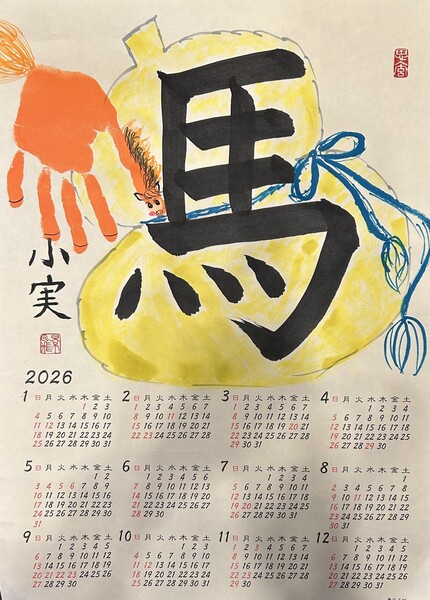 馬
小
実
2026
1 日 月 火 水 木 金 土
1 2 3
4 5 6 7 8 9 10
11 12 13 14 15 16 17
18 19 20 21 22 23 24
25 26 27 28 29 30 31
2 日 月 火 水 木 金 土
1 2 3 4 5 6 7
8 9 10 11 12 13 14
15 16 17 18 19 20 21
22 23 24 25 26 27 28
3 日 月 火 水 木 金 土
1 2 3 4 5 6 7
8 9 10 11 12 13 14
15 16 17 18 19 20 21
22 23 24 25 26 27 28
29 30 31
4 日 月 火 水 木 金 土
1 2 3 4
5 6 7 8 9 10 11
12 13 14 15 16 17 18
19 20 21 22 23 24 25
26 27 28 29 30
5 日 月 火 水 木 金 土
1 2
3 4 5 6 7 8 9
10 11 12 13 14 15 16
17 18 19 20 21 22 23
24 25 26 27 28 29 30
31
6 日 月 火 水 木 金 土
1 2 3 4 5 6
7 8 9 10 11 12 13
14 15 16 17 18 19 20
21 22 23 24 25 26 27
28 29 30
7 日 月 火 水 木 金 土
1 2 3 4
5 6 7 8 9 10 11
12 13 14 15 16 17 18
19 20 21 22 23 24 25
26 27 28 29 30 31
8 日 月 火 水 木 金 土
1
2 3 4 5 6 7 8
9 10 11 12 13 14 15
16 17 18 19 20 21 22
23 24 25 26 27 28 29
30 31
9 日 月 火 水 木 金 土
1 2 3 4 5
6 7 8 9 10 11 12
13 14 15 16 17 18 19
20 21 22 23 24 25 26
27 28 29 30
10 日 月 火 水 木 金 土
1 2 3
4 5 6 7 8 9 10
11 12 13 14 15 16 17
18 19 20 21 22 23 24
25 26 27 28 29 30 31
11 日 月 火 水 木 金 土
1 2 3 4 5 6 7
8 9 10 11 12 13 14
15 16 17 18 19 20 21
22 23 24 25 26 27 28
29 30
12 日 月 火 水 木 金 土
1 2 3 4 5
6 7 8 9 10 11 12
13 14 15 16 17 18 19
20 21 22 23 24 25 26
27 28 29 30 31